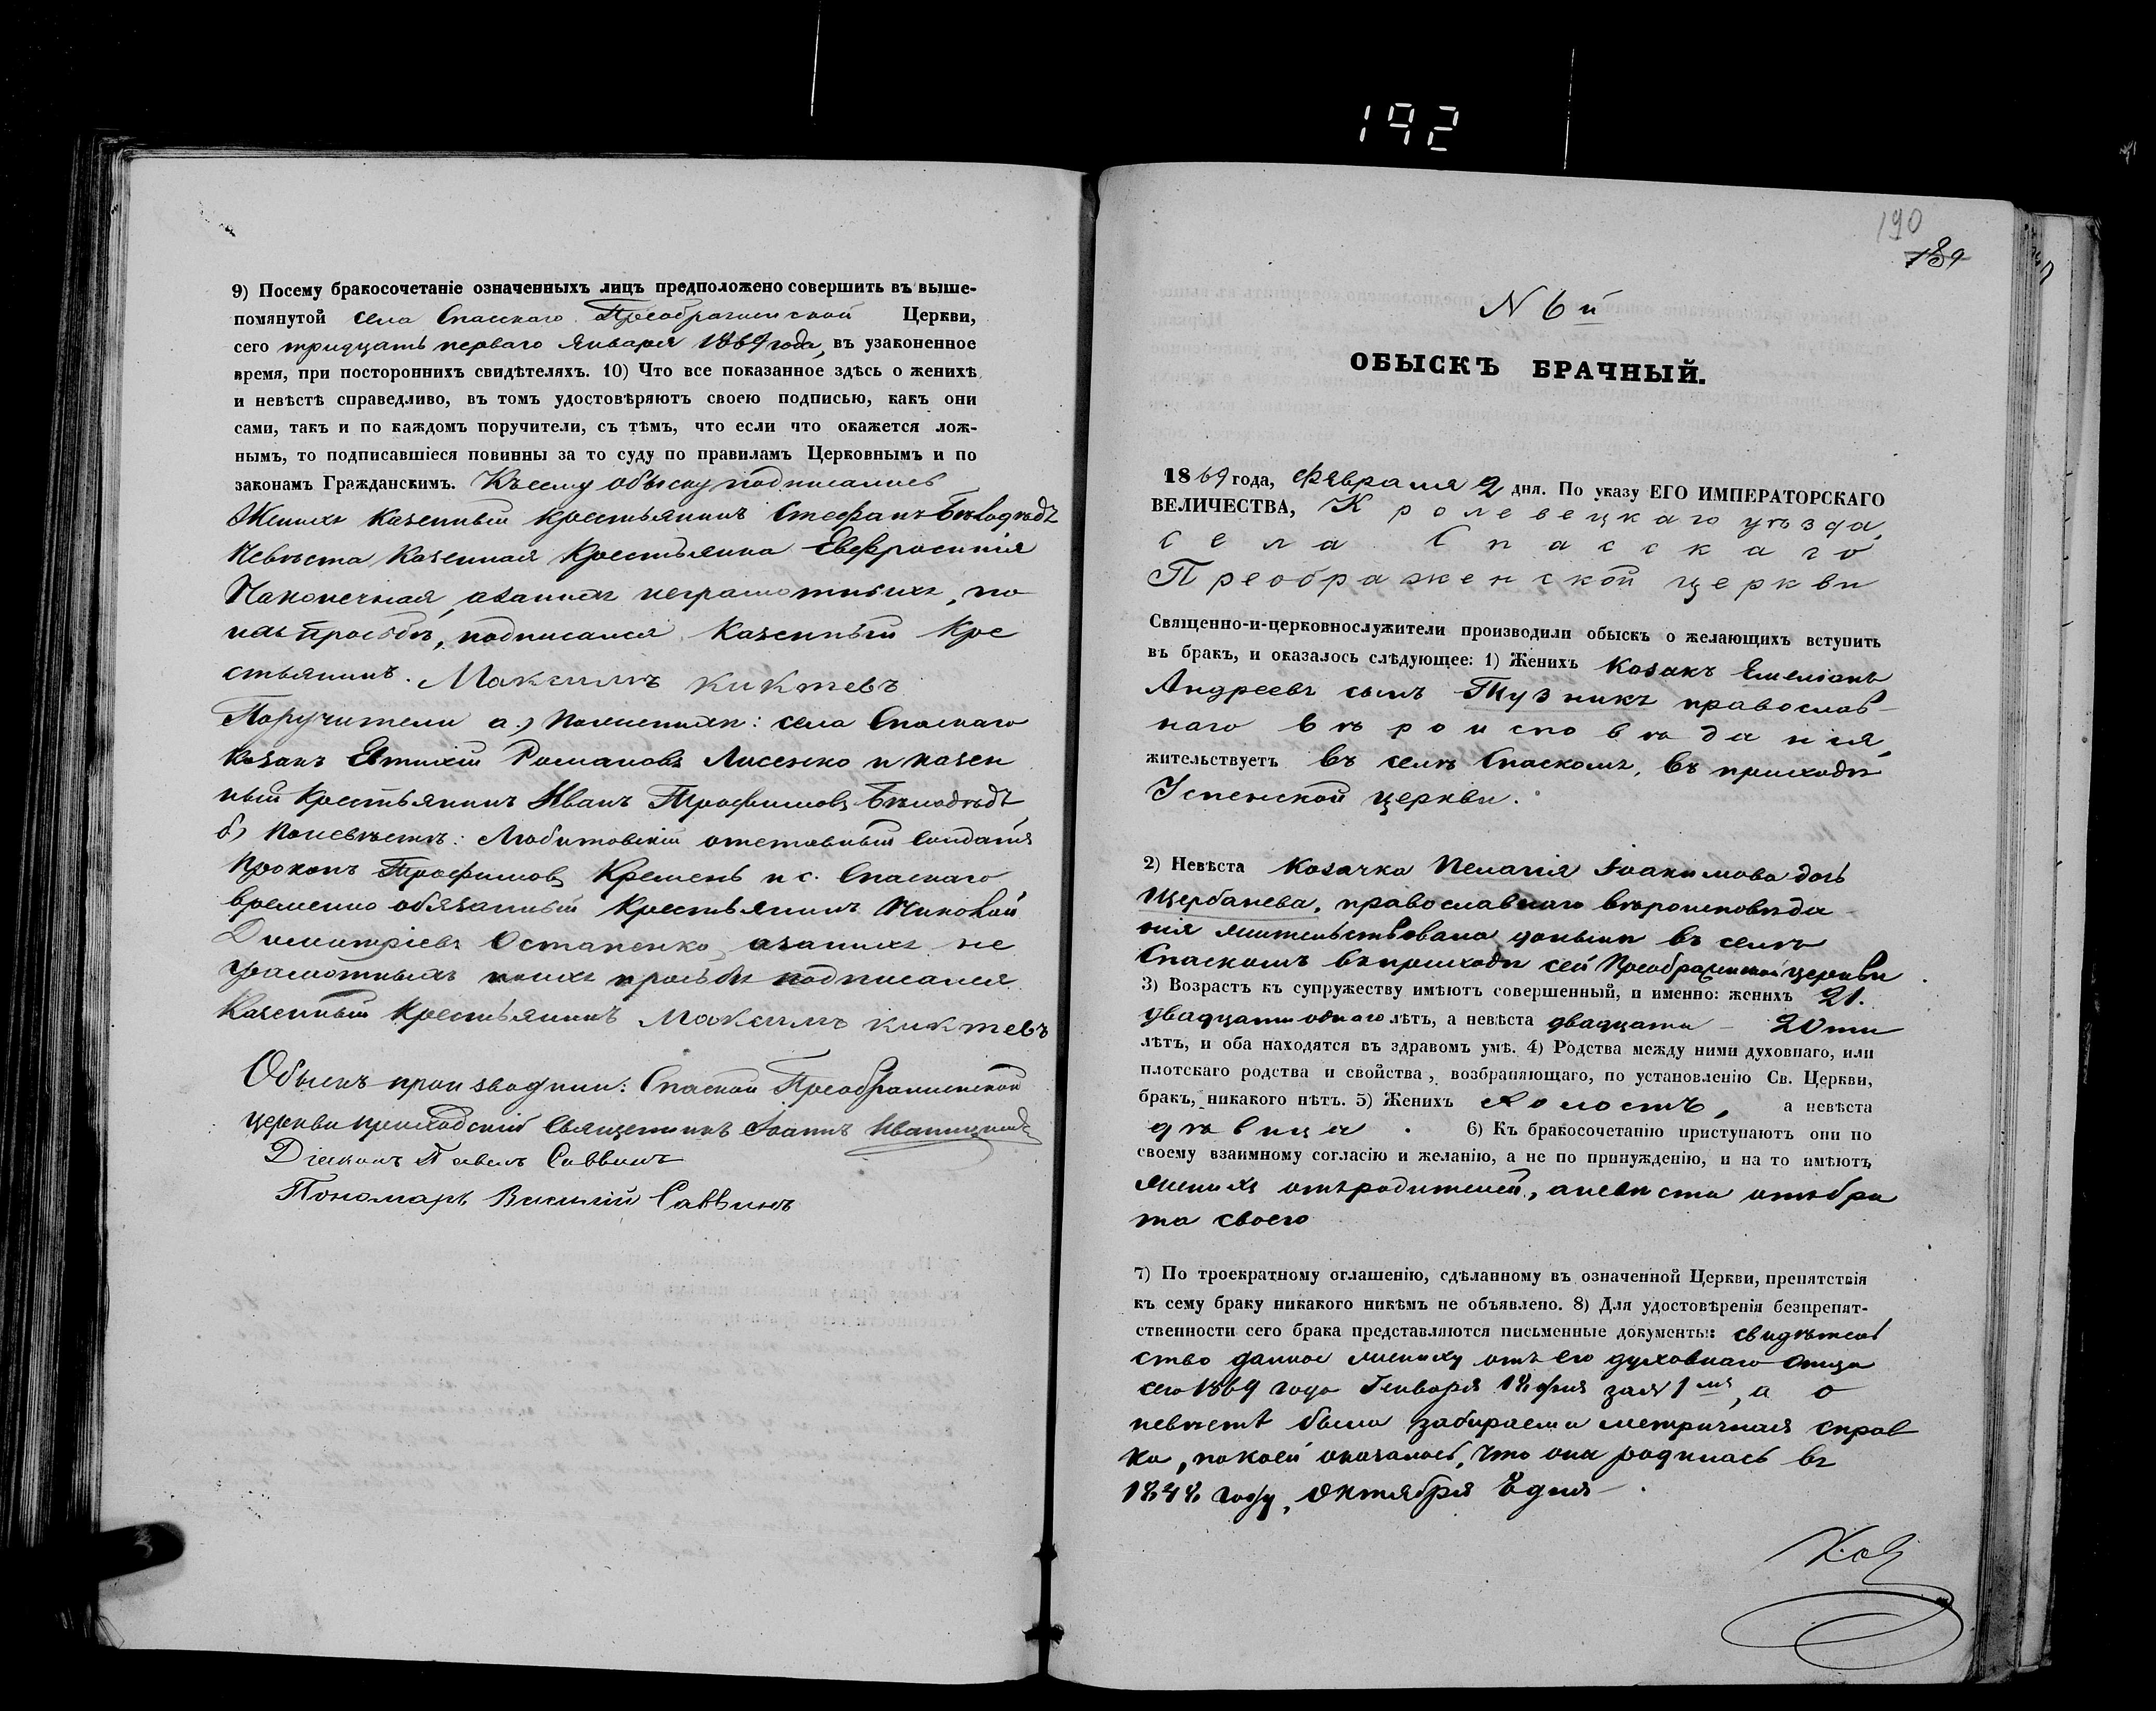 192
9) Посему бракосочетаніе означенныхъ лицъ предположено совершить въ выше-
помянутой села Спасскаго Преображенской Церкви,
сего тридцать перваго Января 1869 года, въ узаконенное
время, при постороннихъ свидѣтеляхъ. 10) Что все показанное здѣсь о женихѣ
и невѣстѣ справедливо, въ томъ удостовѣряютъ своею подписью, какъ они
сами, такъ и по каждомъ поручители, съ тѣмъ, что если что окажется лож-
нымъ, то подписавшіеся повинны за то суду по правиламъ Церковнымъ и по
законамъ Гражданскимъ. Къ сему обыску подписались
Женихъ казенный крестьянинъ Стефанъ Бѣлодѣдъ
Невѣста казенная крестьянка Евфросинія
Наконечная, а за нихъ неграмотныхъ, по
ихъ прозьбѣ, подписался казенный кре
стьянинъ. Максимъ Киктевъ
Поручители а.) По женихѣ: села Спаскаго
козакъ Евтихій Романовъ Лисенко и казен
ный крестьянинъ Иванъ Трофимовъ Бѣлодѣдъ,
б) По невѣстѣ: Любитовскій отставный солдатъ
Прокопъ Трофимовъ Кремень и с. Спаскаго
временно обязанный крестьянинъ Николай
Димитріевъ Остапенко, а за нихъ не
грамотныхъ по ихъ прозьбѣ подписался
казенный крестьянинъ Максимъ Киктевъ
Обыскъ производили: Спаской Преображенской
церкви приходскій Священникъ Іоаннъ
Діаконъ Павелъ Саввинъ
Пономарь Василій Саввинъ
190
189
N 6 й
ОБЫСКЪ БРАЧНЫЙ.
1869 года, Февраля 2 дня. По указу ЕГО ИМПЕРАТОРСКАГО
ВЕЛИЧЕСТВА, Кролевецкаго уѣзда,
села Спасскаго
Преображенской церкви
Священно-и-церковнослужители производили обыскъ о желающихъ вступить
въ бракъ, и оказалось слѣдующее: 1) Женихъ козакъ Емеліанъ
Андреевъ сынъ Тузникъ православ-
наго вѣроисповѣданія,
жительствуетъ въ селѣ Спаскомъ, въ приходѣ
Успенской церкви.
2) Невѣста козачка Пелагія Іоакимова дочь
Щербанева, православнаго вѣроисповѣда-
нія жительствовала донынѣ въ селѣ
Спаскомъ въ приходѣ сей Преображенской церкви.
3) Возрастъ къ супружеству имѣютъ совершенный, и именно: женихъ 21.
двадцати одного лѣтъ, а невѣста двадцати - 20ти
лѣтъ, и оба находятся въ здравомъ умѣ. 4) Родства между ними духовнаго, или
плотскаго родства и свойства, возбраняющаго, по установленію Св. Церкви,
бракъ, никакого нѣтъ. 5) Женихъ холостъ, а невѣста
дѣвица. 6) Къ бракосочетанію приступаютъ они по
своему взаимному согласію и желанію, а не по принужденію, и на то имѣютъ
женихъ отъ родителей, а невѣста отъ бра
та своего
7) По троекратному оглашенію, сдѣланному въ означенной Церкви, препятствія
къ сему браку никакого никѣмъ не объявлено. 8) Для удостовѣренія безпрепят-
ственности сего брака представляются письменные документы: свидѣтель
ство данное жениху отъ его духовнаго отца
сего 1869 года Генваря 18 дня за № 1 мъ, а о
невѣстѣ была забираема метричная справ
ка, по коей оказалось, что она родилась въ
1848 году, Октября 8 дня.